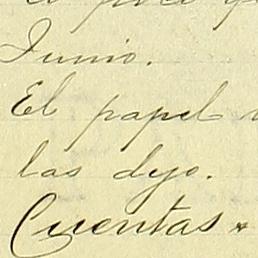 Junio.
El papel
las dejo.
Cuentas